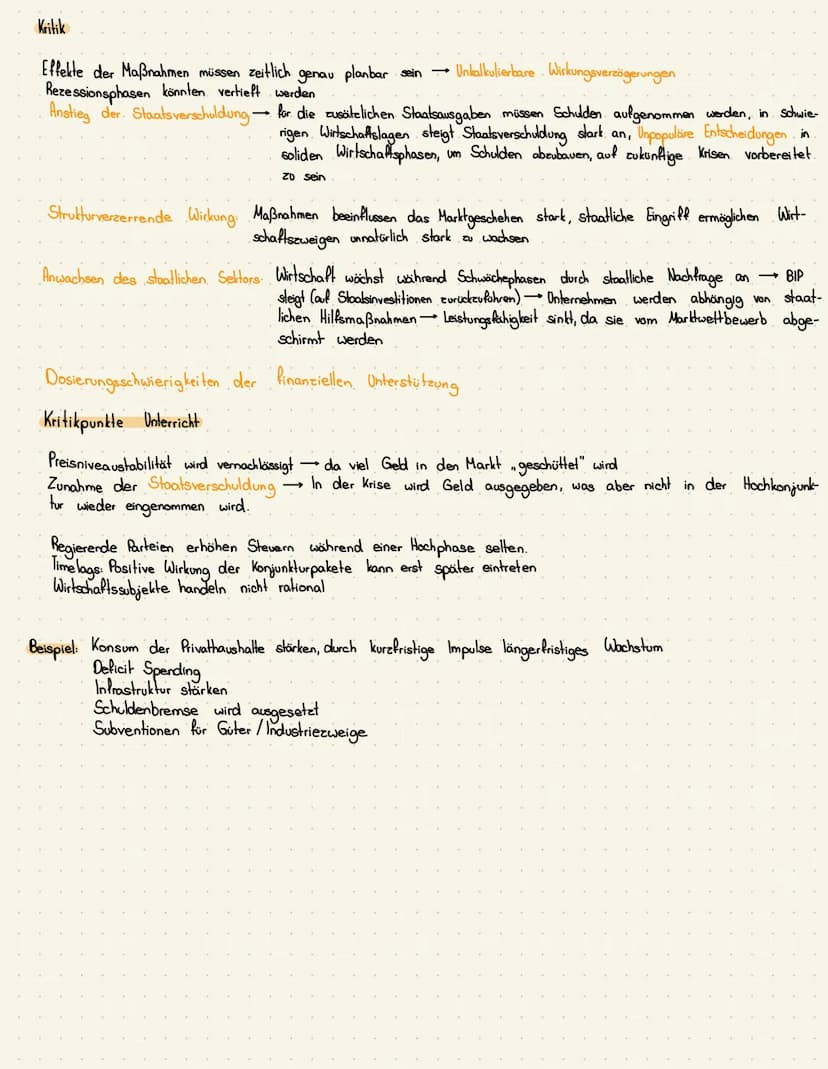 Kritik
Effekte der Maßnahmen müssen zeitlich genau planbar sein → Unkalkulierbare Wirkungsverzögerungen
Rezessionsphasen könnten vertieft werden
Anstieg der Staatsverschuldung → für die zusätzlichen Staatsausgaben müssen Schulden aufgenommen werden, in schwie-
rigen Wirtschaftslagen steigt Staatsverschuldung stark an, Unpopuläre Entscheidungen in
soliden Wirtschaftsphasen, um Schulden abzubauen, auf zukünftige Krisen vorbereitet
zu sein
Strukturverzerrende Wirkung: Maßnahmen beeinflussen das Marktgeschehen stark, staatliche Eingriff ermöglichen Wirt-
schaftszweigen unnatürlich stark zu wachsen
Anwachsen des staatlichen Sektors: Wirtschaft wächst während Schwächephasen durch staatliche Nachfrage an → BIP
steigt (auf Staatsinvestitionen zurückzuführen) → Unternehmen werden abhängig von staat-
lichen Hilfsmaßnahmen → Leistungsfähigkeit sinkt, da sie vom Marktwettbewerb abge-
schirmt werden
Dosierungsschwierigkeiten der finanziellen Unterstützung
Kritikpunkte Unterricht
Preisniveaustabilität wird vernachlässigt → da viel Geld in den Markt „geschüttet" wird
Zunahme der Staatsverschuldung → In der Krise wird Geld ausgegeben, was aber nicht in der Hochkonjunk-
tur wieder eingenommen wird.
Regierende Parteien erhöhen Steuern während einer Hochphase selten.
Timelags: Positive Wirkung der Konjunkturpakete kann erst später eintreten
Wirtschaftssubjekte handeln nicht rational
Beispiel: Konsum der Privathaushalte stärken, durch kurzfristige Impulse längerfristiges Wachstum
Deficit Spending
Infrastruktur stärken
Schuldenbremse wird ausgesetzt
Subventionen für Güter / Industriezweige